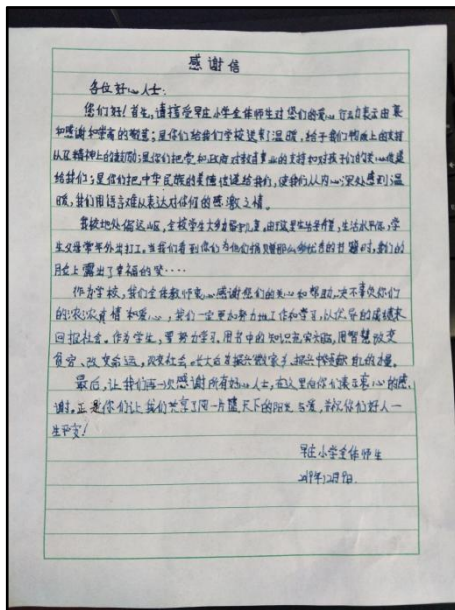 感谢信
各位好心人士:
您们好!首先,请接受早庄小学全体师生对您们的爱心行动表示由衷
和感谢和崇高的敬意;是你们给我们学校送来了温暖,给予我们物质上的支持
以及精神上的鼓励;是你们把党和政府对教育事业的支持和对孩子们的关心传递
给我们;是你们把中华民族的美德传递给我们,使我们从内心深处感到温
暖,我们用语言难以表达对你们的感激之情。
我校地处偏远山区,全校学生大多为留守儿童。由于这里生活艰苦,生活水平低,学
生父母常年外出打工。当我们看到你们为他们捐赠那么多优秀的书籍时,我们的
脸上露出了幸福的笑····
作为学校,我们全体教师衷心感谢您们的关心和帮助,决不辜负你们
的浓浓真情和爱心,我们一定更加努力地工作和学习,以优异的成绩来
回报社会。作为学生,要努力学习,用书中的知识充实头脑,用智慧改变
贫穷、改变命运,改变社会。长大后为振兴家乡、振兴中华贡献自己的力量。
最后,让我们再一次感谢所有好心人士,在这里向你们表示衷心的感
谢。正是你们让我们共享了同一片蓝天下的阳光与爱,并祝你们好人一
生平安!
早庄小学全体师生
2019年12月9日